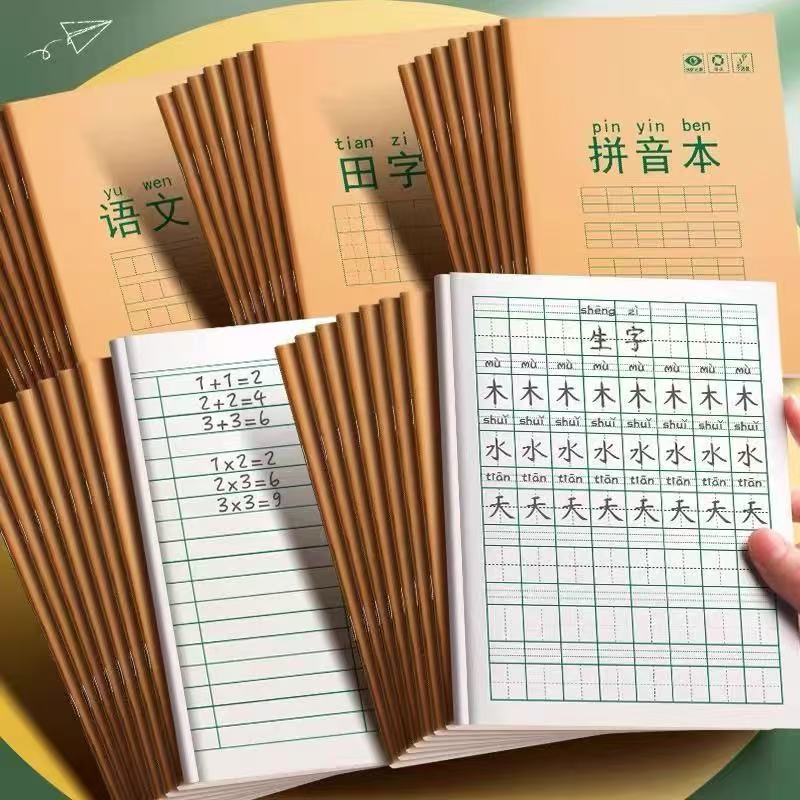 yu wen
语文
tian zi
田字
pin yin ben
拼音本
1+1=2
2+2=4
3+3=6
1×2=2
2×3=6
3×3=9
shēng zì
生字
mù mù mù mù mù mù mù mù
木 木 木 木 木 木 木 木
shuǐ shuǐ shuǐ shuǐ shuǐ shuǐ shuǐ shuǐ
水 水 水 水 水 水 水 水
tiān tiān tiān tiān tiān tiān tiān tiān
天 天 天 天 天 天 天 天